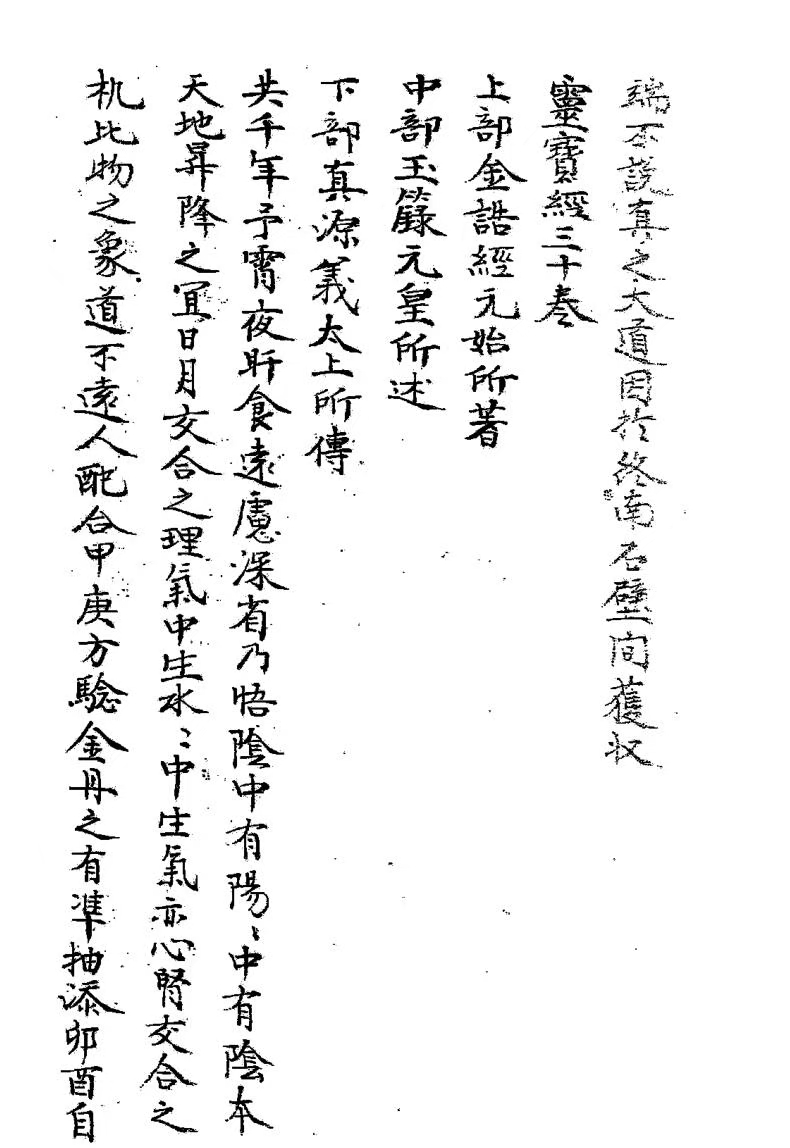 端不說真之大道因扵終南石壁間獲収
靈寳經三十卷
上部金誥經元始所著
中部玉籙元皇所述
下部真源義太上所傳
共千年予宵夜旰食遠慮深省乃悟陰中有陽〻中有陰本
天地昇降之宜日月交合之理氣中生水〻中生氣亦心腎交合之
机比物之象道不遠人配合甲庚方驗金丹之有凖抽添卯酉自